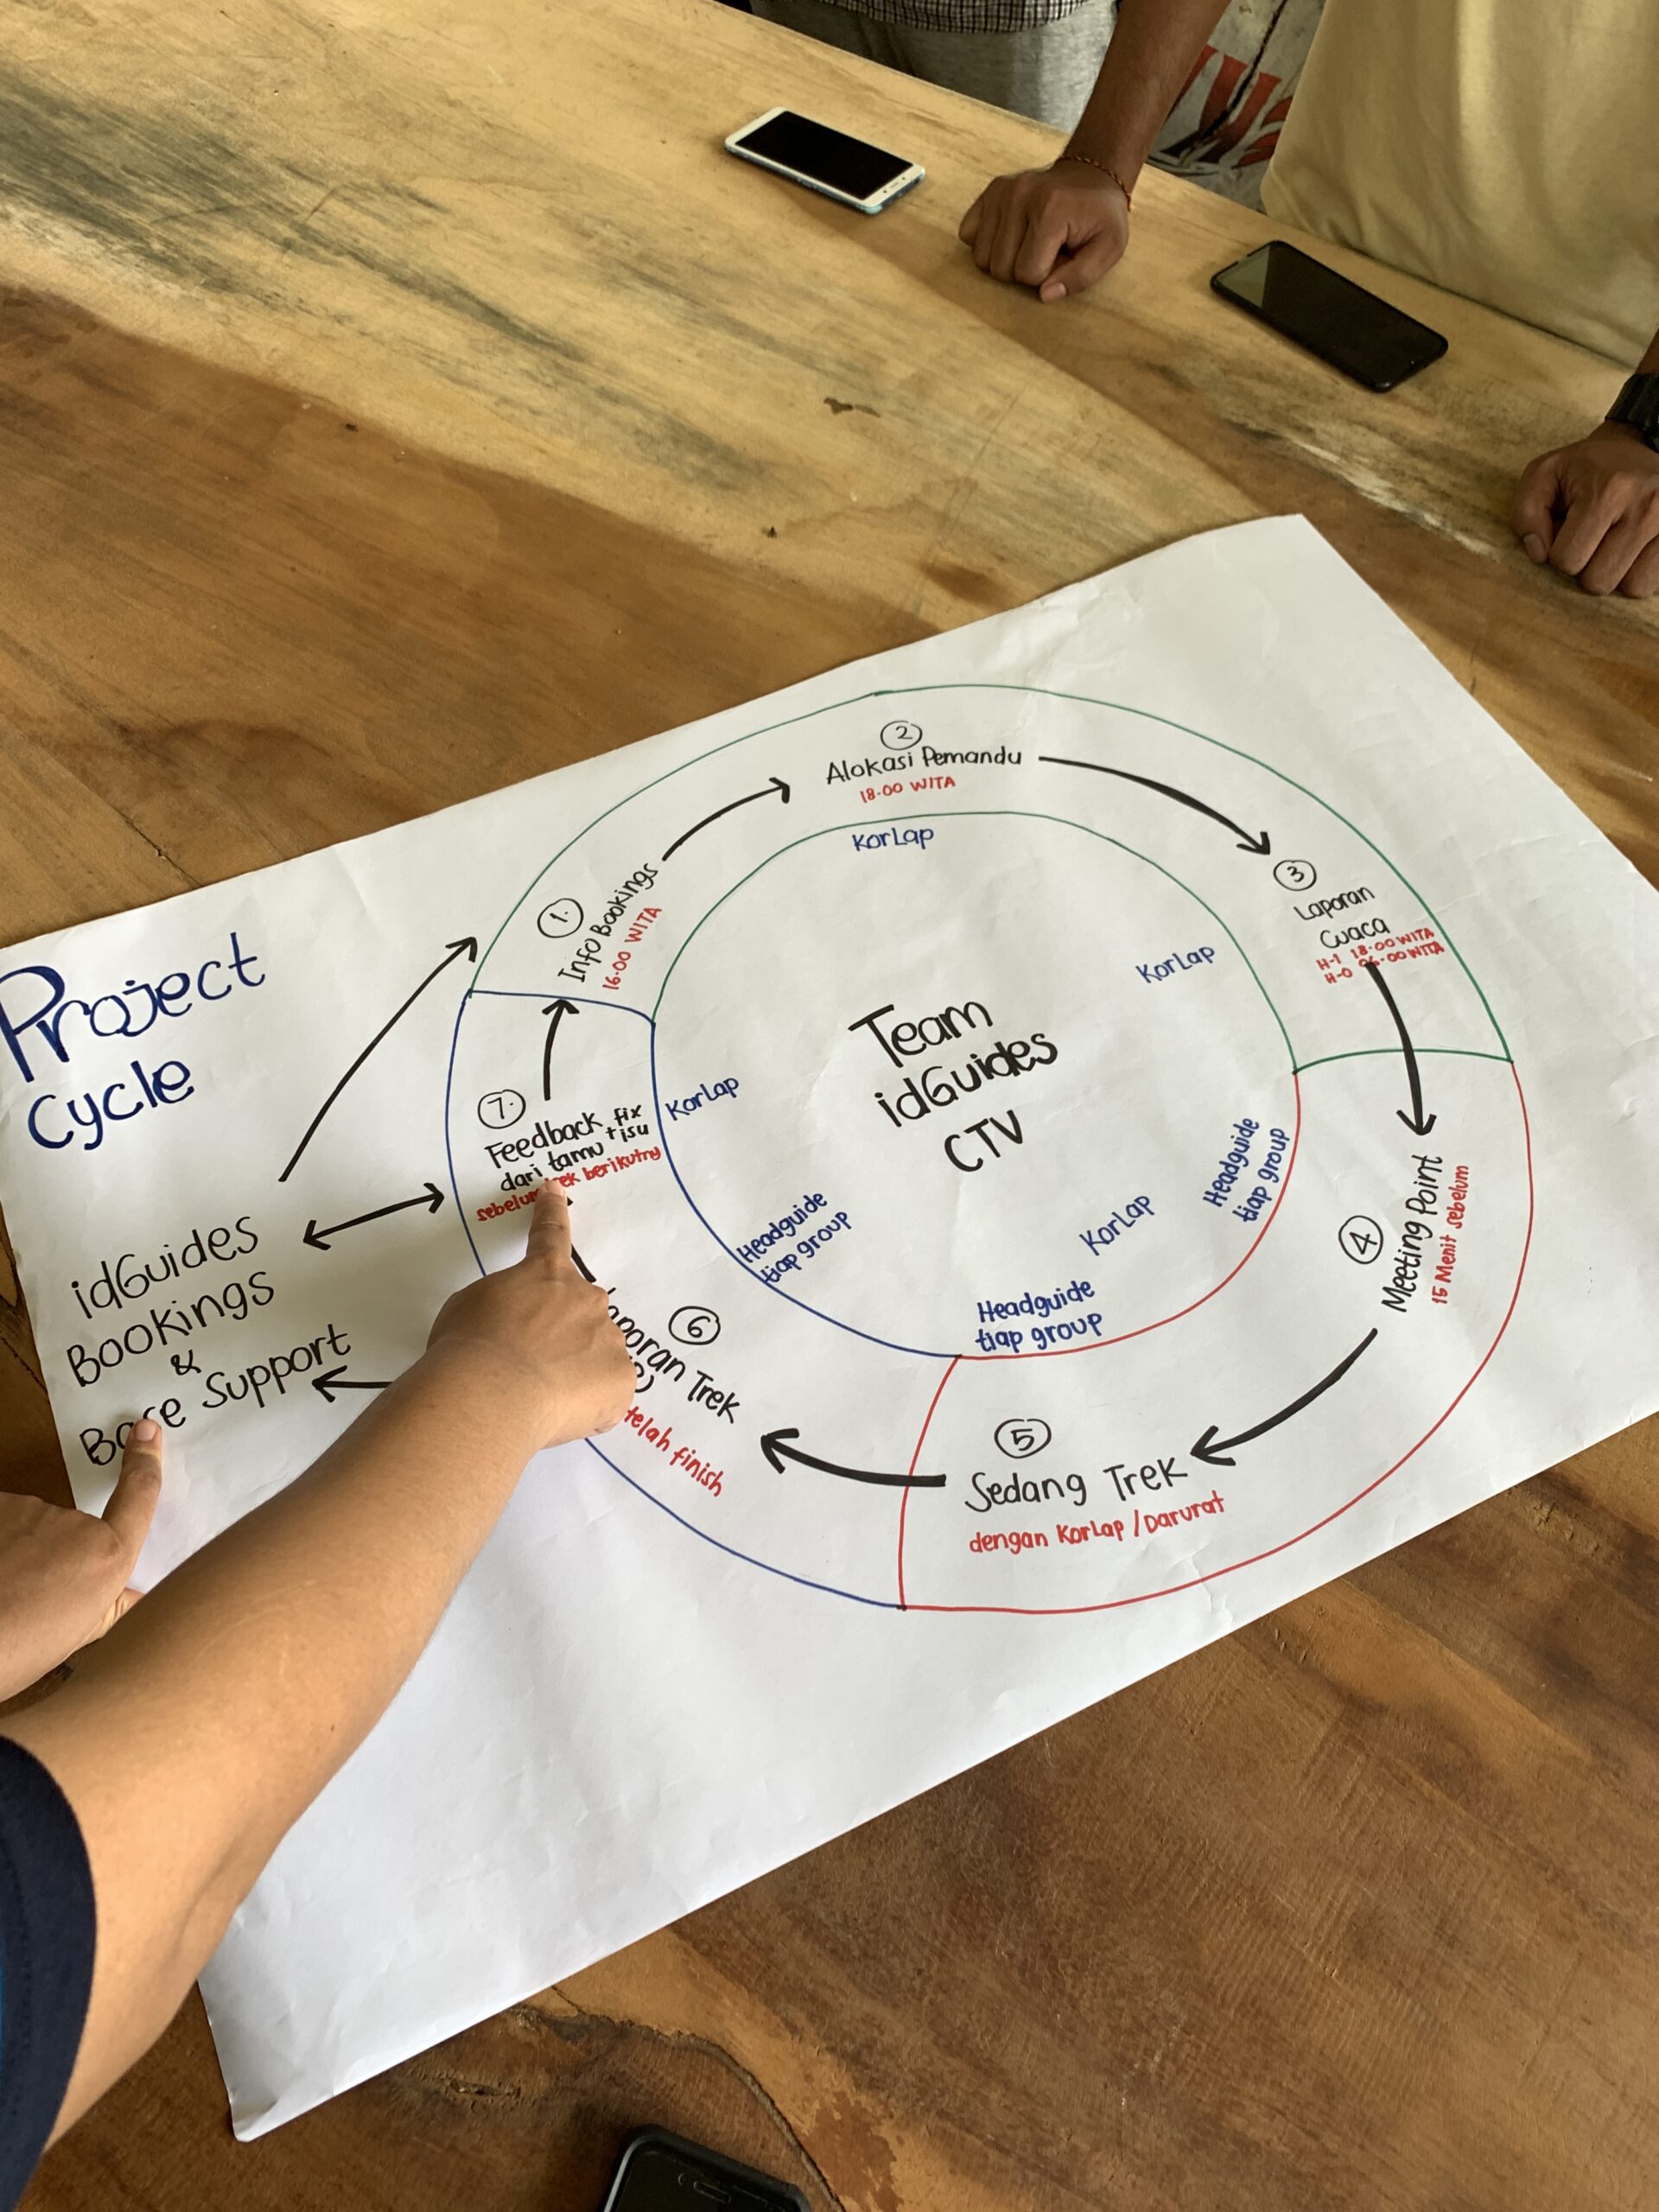 Project
Cycle
idGuides
Bookings
&
Base Support
1.
Info Bookings
16.00 WITA
2
Alokasi Pemandu
18.00 WITA
3
Laporan
Cuaca
H-1 18.00 WITA
H-0 06.00 WITA
4
Meeting Point
15 Menit sebelum
5
Sedang Trek
dengan KorLap / Darurat
6
Laporan Trek
finish
7.
Feedback fix
dari tamu + isu
berikutny
KorLap
KorLap
KorLap
KorLap
Headguide
tiap group
Headguide
tiap group
Headguide
tiap group
Team
idGuides
CTV